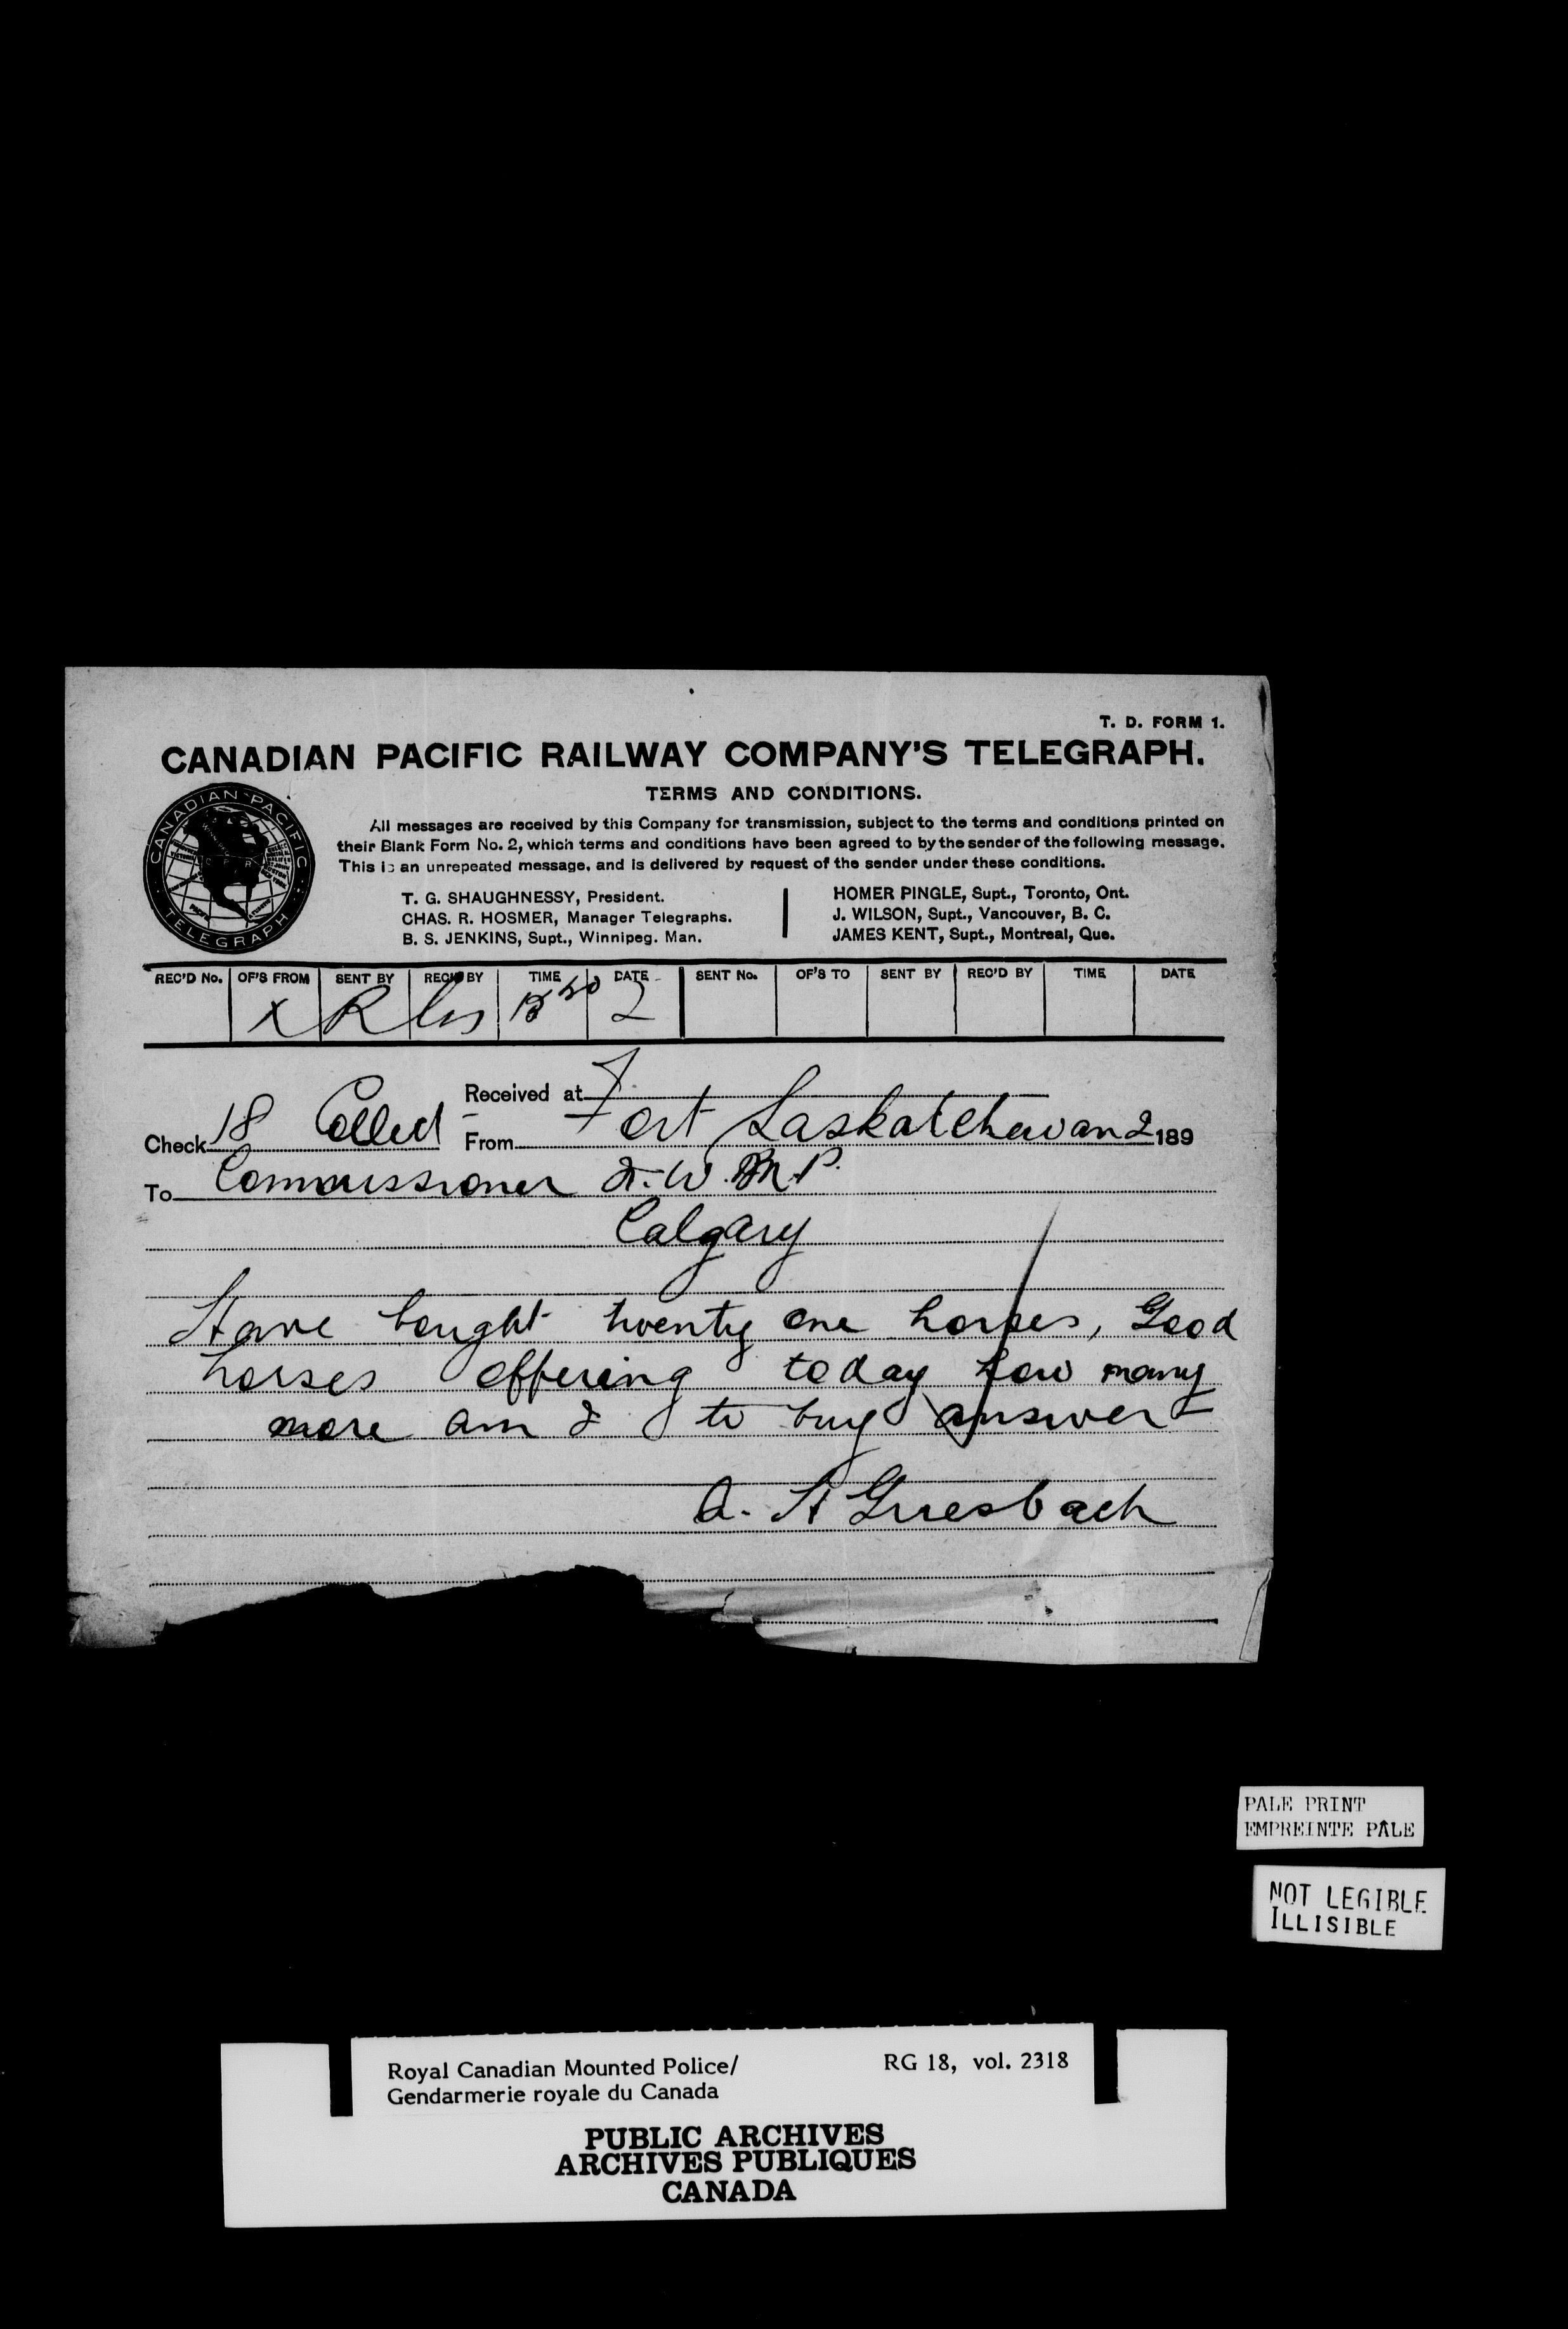 T. D. FORM 1.
CANADIAN PACIFIC RAILWAY COMPANY'S TELEGRAPH.
TERMS AND CONDITIONS.
CANADIAN PACIFIC
TELEGRAPH
All messages are received by this Company for transmission, subject to the terms and conditions printed on
their Blank Form No. 2, which terms and conditions have been agreed to by the sender of the following message.
This is an unrepeated message, and is delivered by request of the sender under these conditions.
T. G. SHAUGHNESSY, President.
CHAS. R. HOSMER, Manager Telegraphs.
B. S. JENKINS, Supt., Winnipeg. Man.
HOMER PINGLE, Supt., Toronto, Ont.
J. WILSON, Supt., Vancouver, B. C.
JAMES KENT, Supt., Montreal, Que.
REC'D No. OF'S FROM SENT BY REC'D BY TIME DATE SENT No. OF'S TO SENT BY REC'D BY TIME DATE
X R 2
Received at
Check 18 Collect From Fort Saskatchewan 2 189
To Commissioner N.W.M.P.
Calgary
Have bought twenty one horses, Good
horses offering today how many
more am I to buy answer
A. H Griesbach
PALE PRINT
EMPREINTE PÂLE
NOT LEGIBLE
ILLISIBLE
Royal Canadian Mounted Police/ RG 18, vol. 2318
Gendarmerie royale du Canada
PUBLIC ARCHIVES
ARCHIVES PUBLIQUES
CANADA